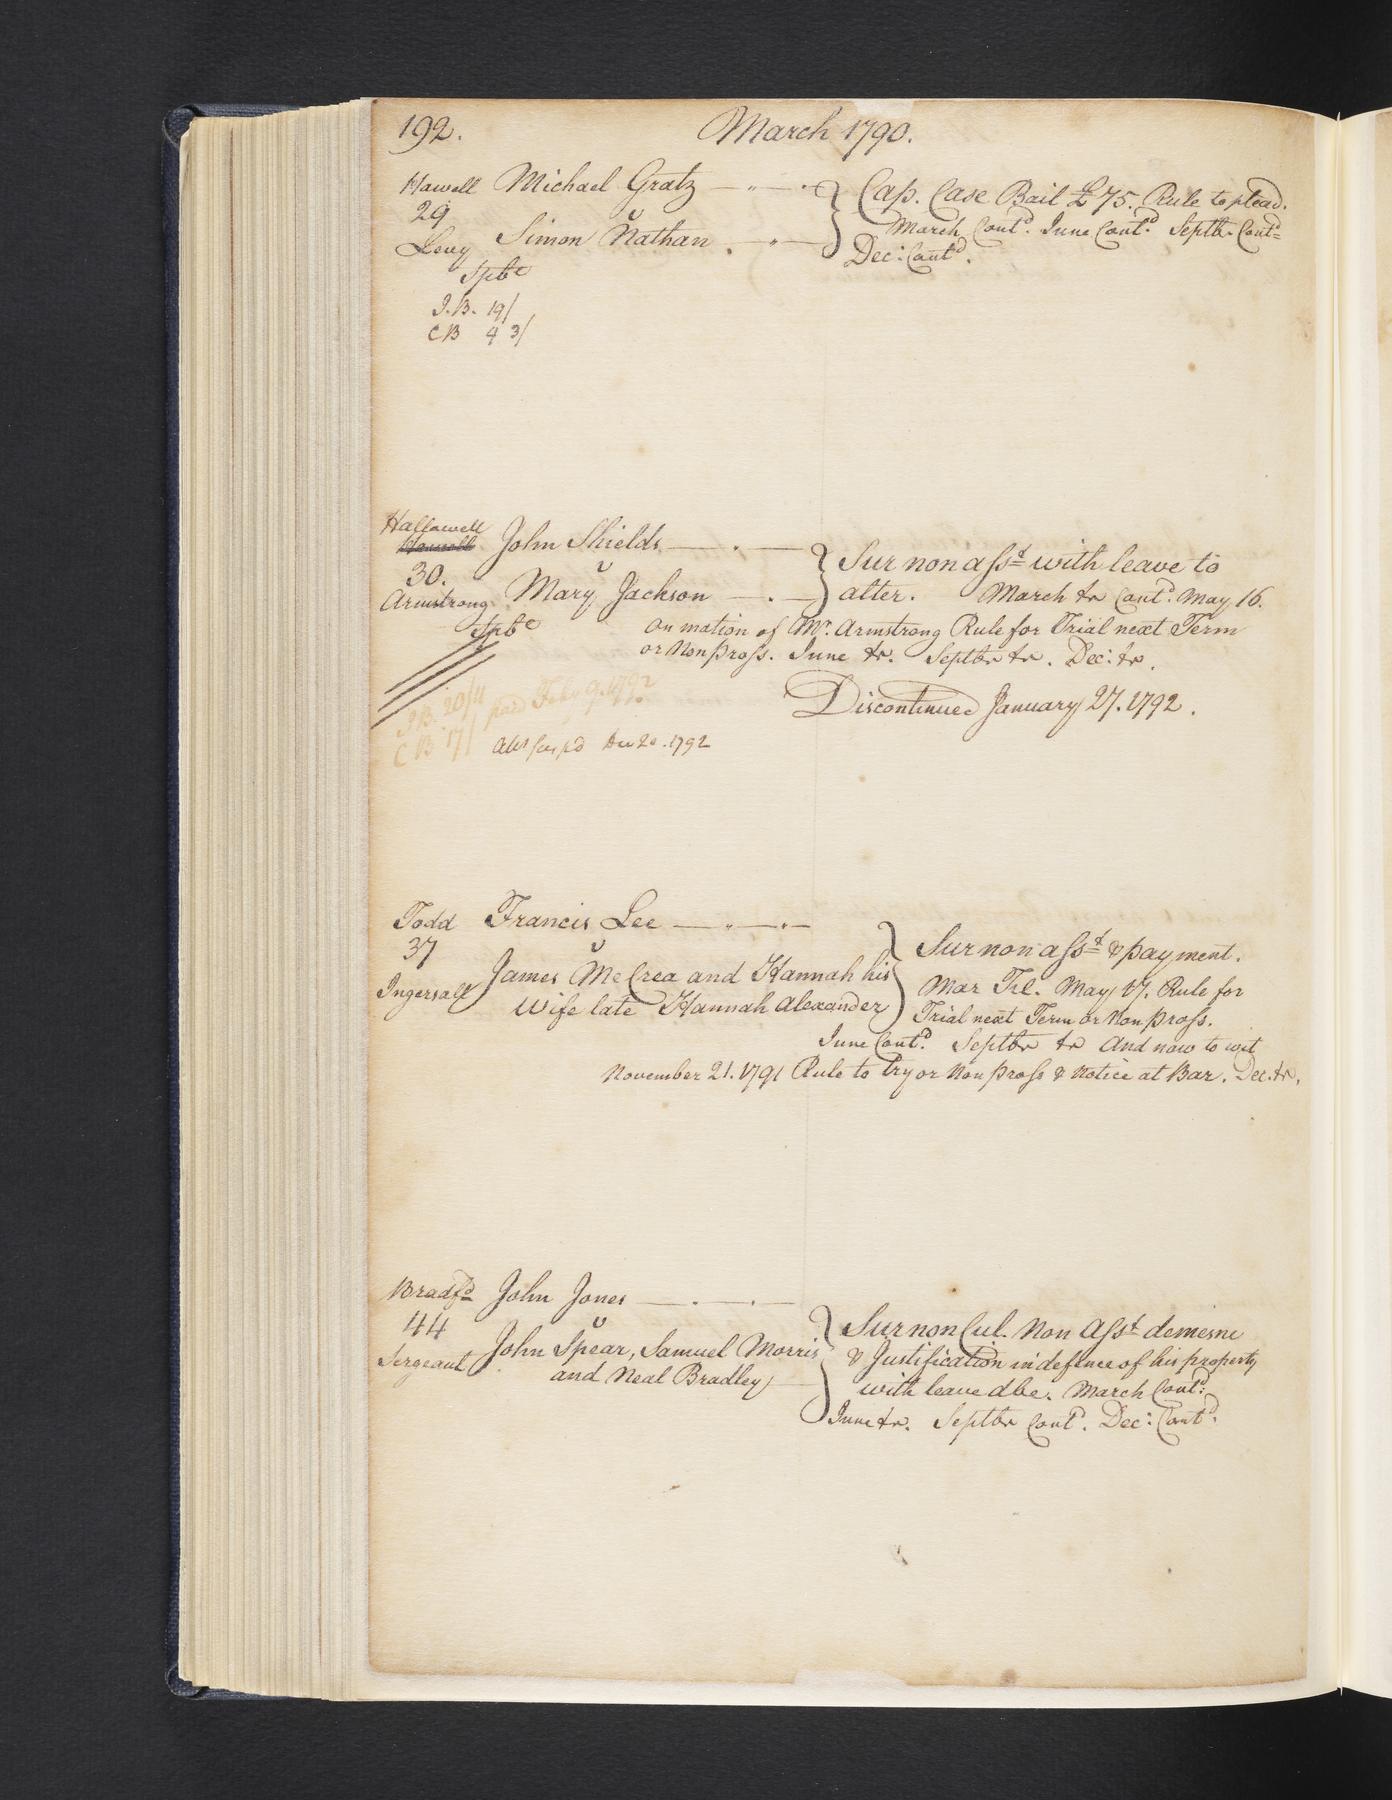 192.
March 1790.
Hawell Michael Gratz
29 v
Levy Simon Nathan.
Cap. Case Bail £75. Rule to plead.
March Contd. June Contd. Septbr Contd
Dec: Contd.
Spbc
J.B. 19/
CB 4 3/
Hallowell
John Shields
30. v
Armstrong Mary Jackson
Spbc
Sur non asst with leave to
alter. March tr Contd. May 16.
on motion of Mr. Armstrong Rule for Trial next Term
or Non pross. June tr. Septbr tr. Dec: tr.
Discontinued January 27. 1792.
J.B. 20/11 paid Feby 9. 1792
CB 17/ Dec 20. 1792
Todd Francis Lee
37 v
Ingersoll James McCrea and Hannah his
Wife late Hannah Alexander
Sur non asst & payment.
Mar Trl. May 17. Rule for
Trial next Term or Non pross.
June Contd. Septbr tr And now to wit
November 21. 1791 Rule to Try or Non pross & Notice at Bar. Dec. tr.
Bradfd John Jones
44 v
Sergeant John Spear, Samuel Morris
and Neal Bradley
Sur non Cul. Non Asst demesne
& Justification in defence of his property
with leave &c. March Contd.
June tr. Septbr Contd. Dec: Contd.